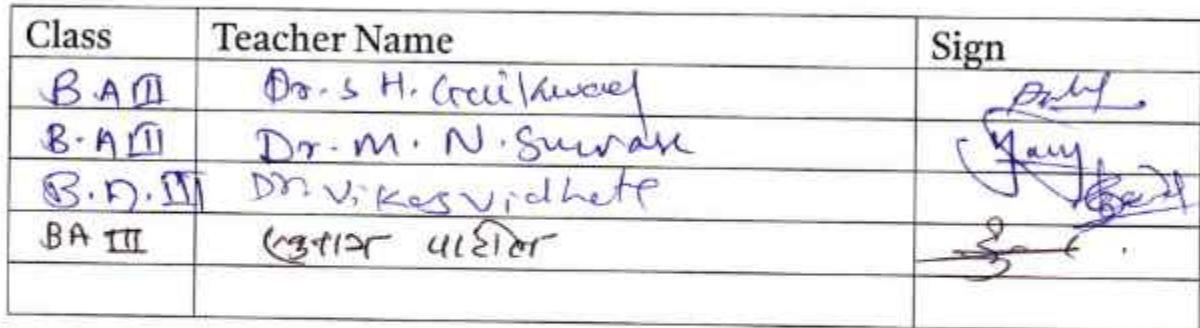 Class Teacher Name Sign
B.A III Dr. S H. Gaikwad
B.A III Dr. M. N. Survase
B.A. III Dr. Vikas Vidhate
BA III पाटील